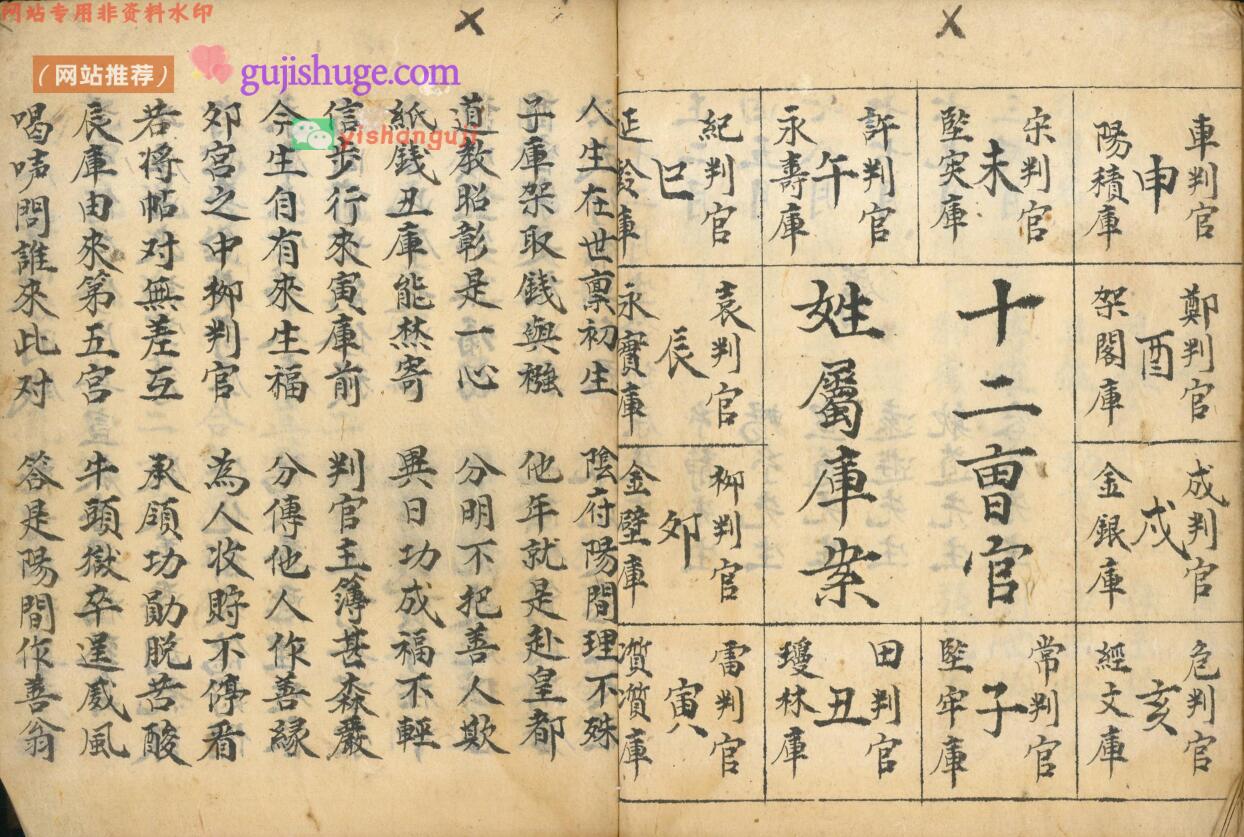 网站专用非资料水印
(网站推荐)
gujishuge.com
yishanguji
十二曺官
姓屬庫案
常判官
子
堅牢庫
田判官
丑
瓊林庫
雷判官
寅
質庫
柳判官
夘
金壁庫
袁判官
辰
永寳庫
紀判官
巳
庫
許判官
午
永壽庫
宋判官
未
堅实庫
車判官
申
陽積庫
鄭判官
酉
架閣庫
成判官
戍
金銀庫
危判官
亥
經文庫
人生在世禀初生 陰府陽間理不殊
子庫架取錢與襁 他年就是赴皇都
道教昭彰是一心 分明不把善人欺
紙錢丑庫能焚寄 異日功成福不輕
信步行來寅庫前 判官主簿甚森嚴
今生自有來生福 分傳他人作善緣
夘宮之中柳判官 為人收貯不停看
若將帖对無差互 承領功勛脱苦酸
辰庫由來第五宮 牛頭獄卒逞威風
喝問誰來此对 答是陽間作善翁